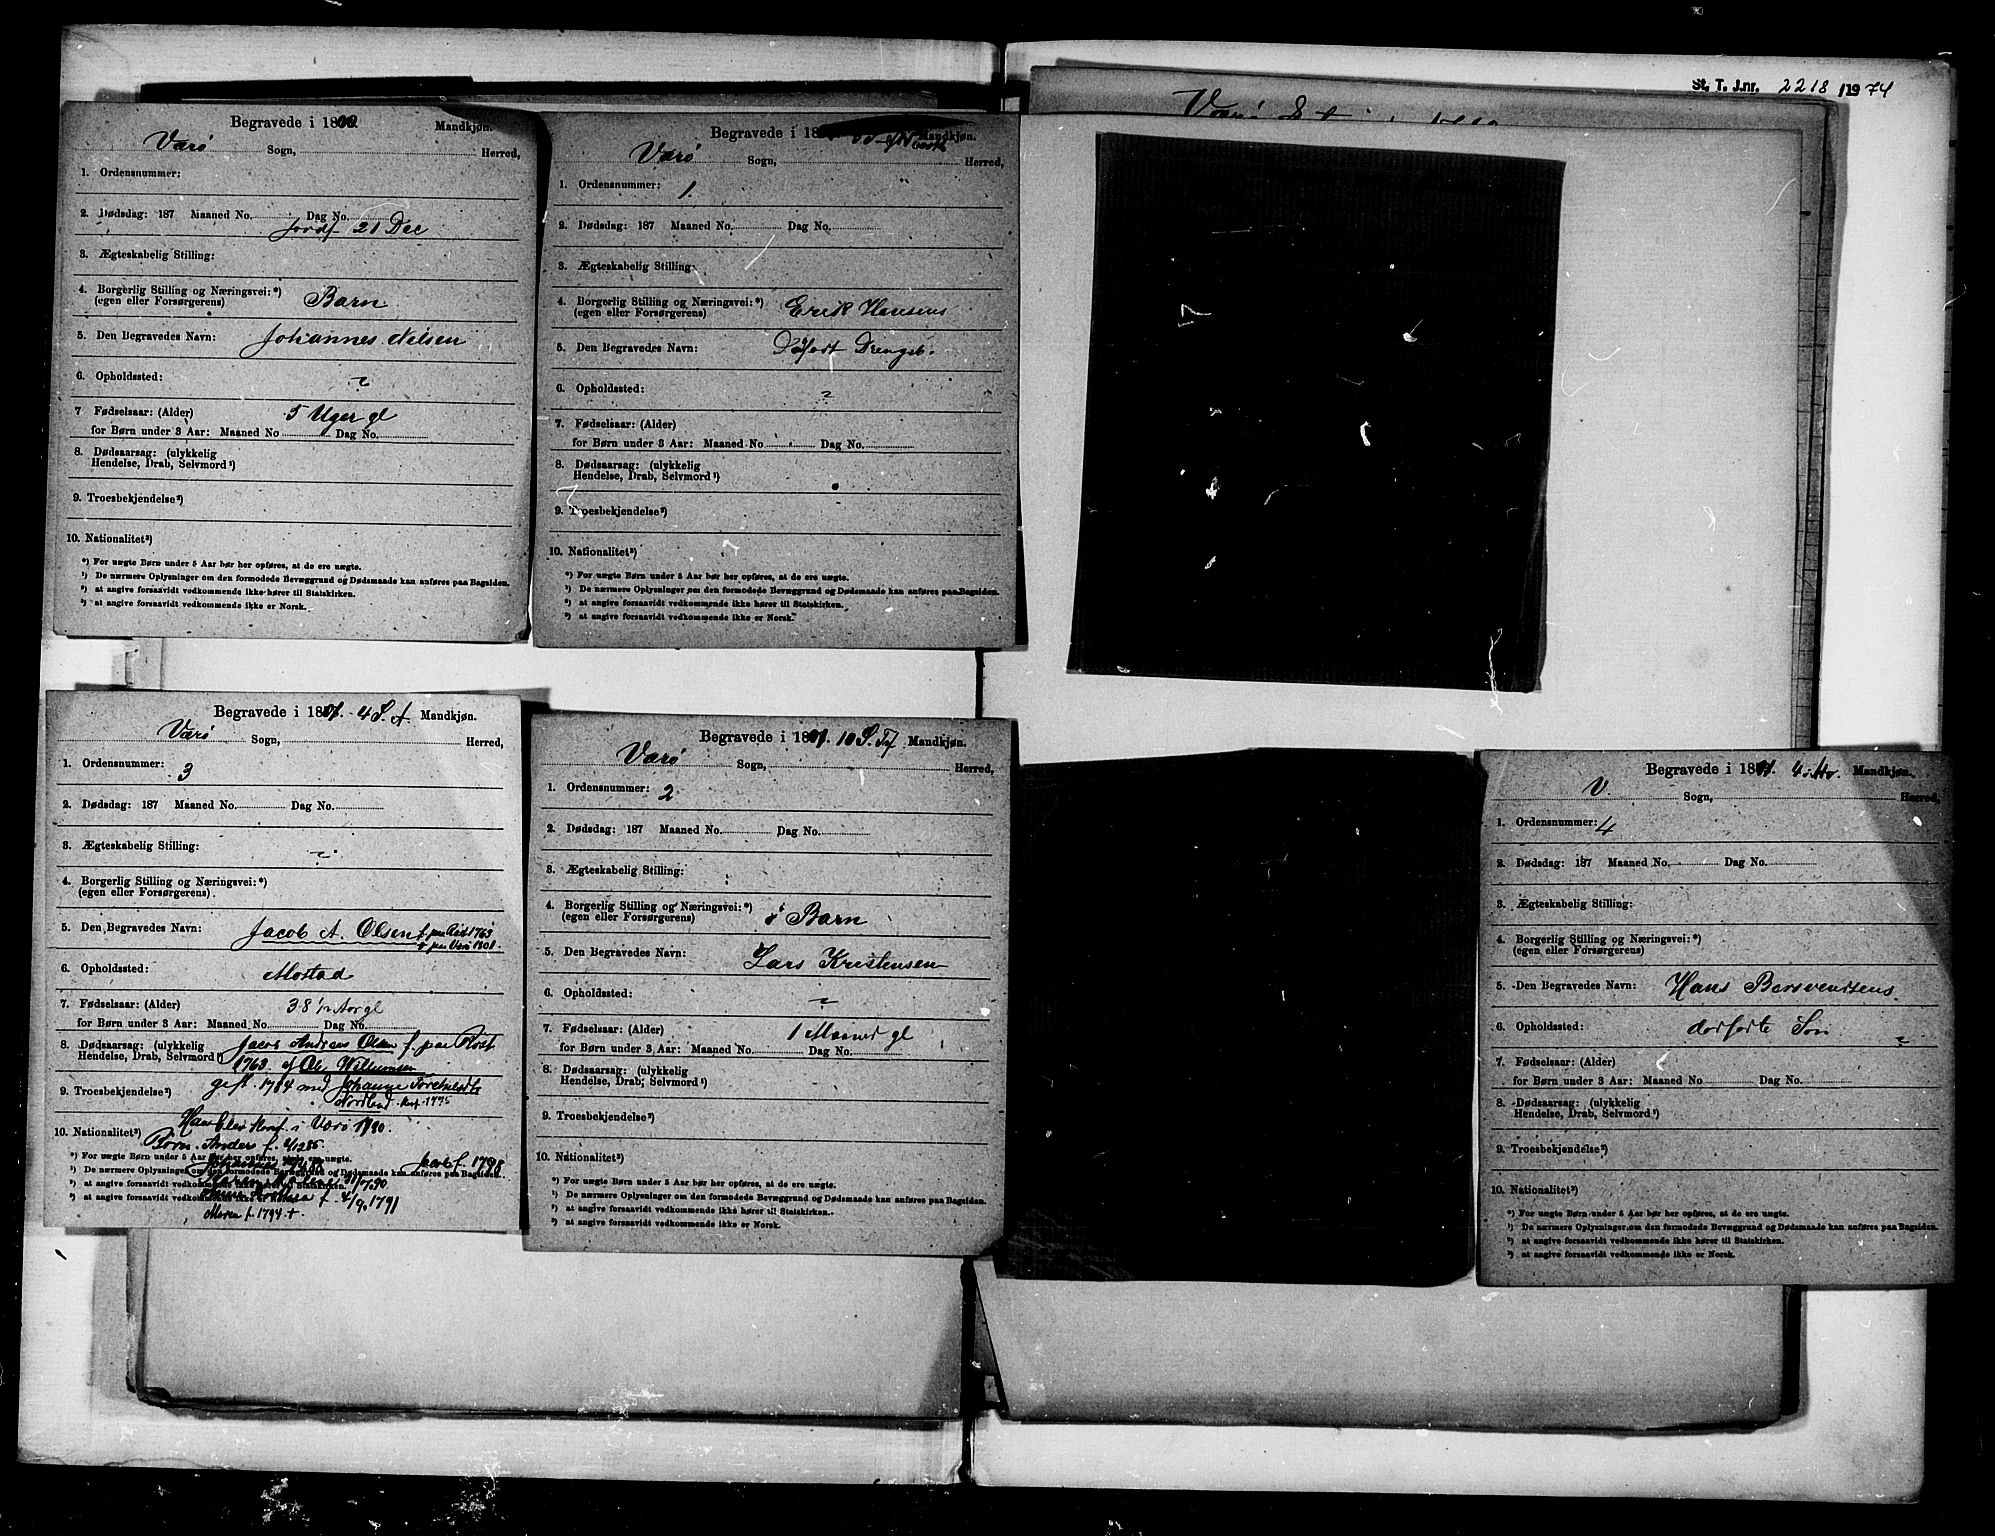 St. T. J.nr. 2218/1974
Værø
Begravede i 1800. Mandkjøn.
Værø Sogn, Herred,
1. Ordensnummer:
2. Dødsdag: 187 Maaned No. Dag No.
Jordf 21 Dec
3. Ægteskabelig Stilling:
4. Borgerlig Stilling og Næringsvei:*)
(egen eller Forsørgerens) Barn
5. Den Begravedes Navn: Johannes Nilsen
6. Opholdssted: ?
7 Fødselsaar: (Alder) 5 Uger gl
for Børn under 3 Aar: Maaned No Dag No.
8. Dødsaarsag: (ulykkelig
Hendelse, Drab, Selvmord¹)
9. Troesbekjendelse²)
10. Nationalitet³)
*) For uægte Børn under 5 Aar bør her opføres, at de ere uægte.
¹) De nærmere Oplysninger om den formodede Bevæggrund og Dødsmaade kan anføres paa Bagsiden.
²) at angive forsaavidt vedkommende ikke hører til Statskirken.
³) at angive forsaavidt vedkommende ikke er Norsk.
Begravede i 18 Mandkjøn.
Værø Sogn, Herred,
1. Ordensnummer: 1.
2. Dødsdag: 187 Maaned No. Dag No.
3. Ægteskabelig Stilling:
4. Borgerlig Stilling og Næringsvei:*) Erik Hansens
(egen eller Forsørgerens)
5. Den Begravedes Navn: Drengeb.
6. Opholdssted: ?
7. Fødselsaar: (Alder)
for Børn under 3 Aar: Maaned No Dag No.
8. Dødsaarsag: (ulykkelig
Hendelse, Drab, Selvmord¹)
9. Troesbekjendelse²)
10. Nationalitet³)
*) For uægte Børn under 5 Aar bør her opføres, at de ere uægte.
¹) De nærmere Oplysninger om den formodede Bevæggrund og Dødsmaade kan anføres paa Bagsiden.
²) at angive forsaavidt vedkommende ikke hører til Statskirken.
³) at angive forsaavidt vedkommende ikke er Norsk.
Begravede i 1801. 4 S. A. Mandkjøn.
Værø Sogn, Herred,
1. Ordensnummer: 3
2. Dødsdag: 187 Maaned No. Dag No.
3. Ægteskabelig Stilling: ?
4. Borgerlig Stilling og Næringsvei:*)
(egen eller Forsørgerens)
5. Den Begravedes Navn: Jacob A. Olsen f. paa Røst 1763
+ paa Værø 1801.
6. Opholdssted: Mostad
7. Fødselsaar: (Alder) 38 ½ Aar gl
for Børn under 3 Aar: Maaned No. Dag No.
8. Dødsaarsag: (ulykkelig Jacob Andreas Olsen f. paa Røst
Hendelse, Drab, Selvmord¹) 1763 af Ole Willumsen
gift 1784 med Johanne
9. Troesbekjendelse²) Nordland. 1775
Han blev Konf. i Værø 1780.
10. Nationalitet³) Børn. Anders f.
*) For uægte Børn under 5 Aar bør her opføres, at de ere uægte.
Johannes Jacob f. 1798
¹) De nærmere Oplysninger om den formodede Bevæggrund og Dødsmaade kan anføres paa Bagsiden.
²) at angive forsaavidt vedkommende ikke hører til Statskirken.
³) at angive forsaavidt vedkommende ikke er Norsk. f. 4/9. 1791
Maren f. 1794 +.
Begravede i 1801. 10 S. Tf Mandkjøn.
Værø Sogn, Herred,
1. Ordensnummer: 2
2. Dødsdag: 187 Maaned No. Dag No.
3. Ægteskabelig Stilling:
4. Borgerlig Stilling og Næringsvei:*)
(egen eller Forsørgerens) Barn
5. Den Begravedes Navn: Lars Kristensen
6. Opholdssted: ?
7. Fødselsaar: (Alder) 1 Maaned gl
for Børn under 3 Aar: Maaned No. Dag No.
8. Dødsaarsag: (ulykkelig
Hendelse, Drab, Selvmord¹)
9. Troesbekjendelse²)
10. Nationalitet³)
*) For uægte Børn under 5 Aar bør her opføres, at de ere uægte.
¹) De nærmere Oplysninger om den formodede Bevæggrund og Dødsmaade kan anføres paa Bagsiden.
²) at angive forsaavidt vedkommende ikke hører til Statskirken.
³) at angive forsaavidt vedkommende ikke er Norsk.
Begravede i 18 Mandkjøn.
V. Sogn, Herred,
1. Ordensnummer: 4
2. Dødsdag: 187 Maaned No. Dag No.
3. Ægteskabelig Stilling:
4. Borgerlig Stilling og Næringsvei:*)
(egen eller Forsørgerens)
5. Den Begravedes Navn: Hans Bersvendsens
6. Opholdssted: dødfødte Søn ?
7. Fødselsaar: (Alder)
for Børn under 3 Aar: Maaned No Dag No.
8. Dødsaarsag: (ulykkelig
Hendelse, Drab, Selvmord¹)
9. Troesbekjendelse²)
10. Nationalitet³)
*) For uægte Børn under 5 Aar bør her opføres, at de ere uægte.
¹) De nærmere Oplysninger om den formodede Bevæggrund og Dødsmaade kan anføres paa Bagsiden.
²) at angive forsaavidt vedkommende ikke hører til Statskirken.
³) at angive forsaavidt vedkommende ikke er Norsk.